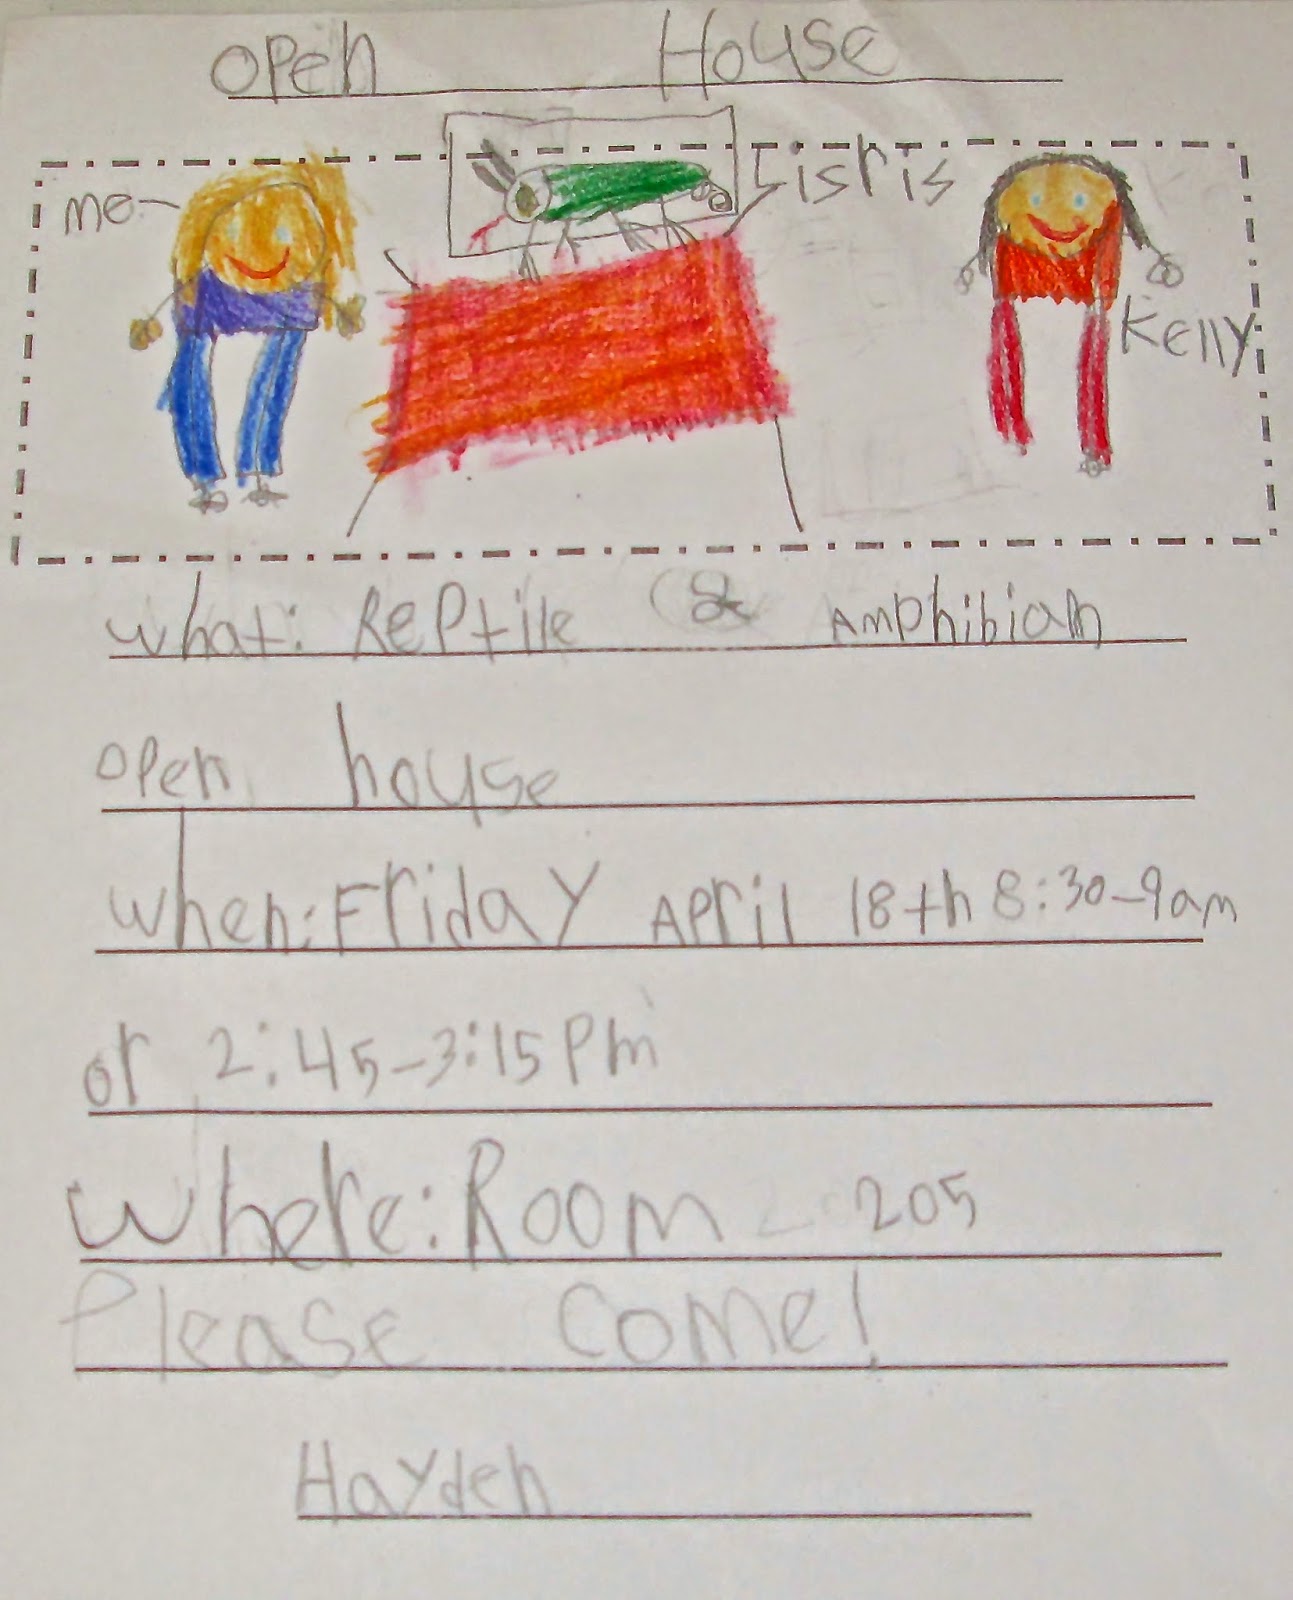 Open House
me
Iisris
Kelly
what: Reptile & Amphibian
open house
when: Friday April 18th 8:30-9am
or 2:45-3:15 Pm
where: Room 205
Please come!
Hayden